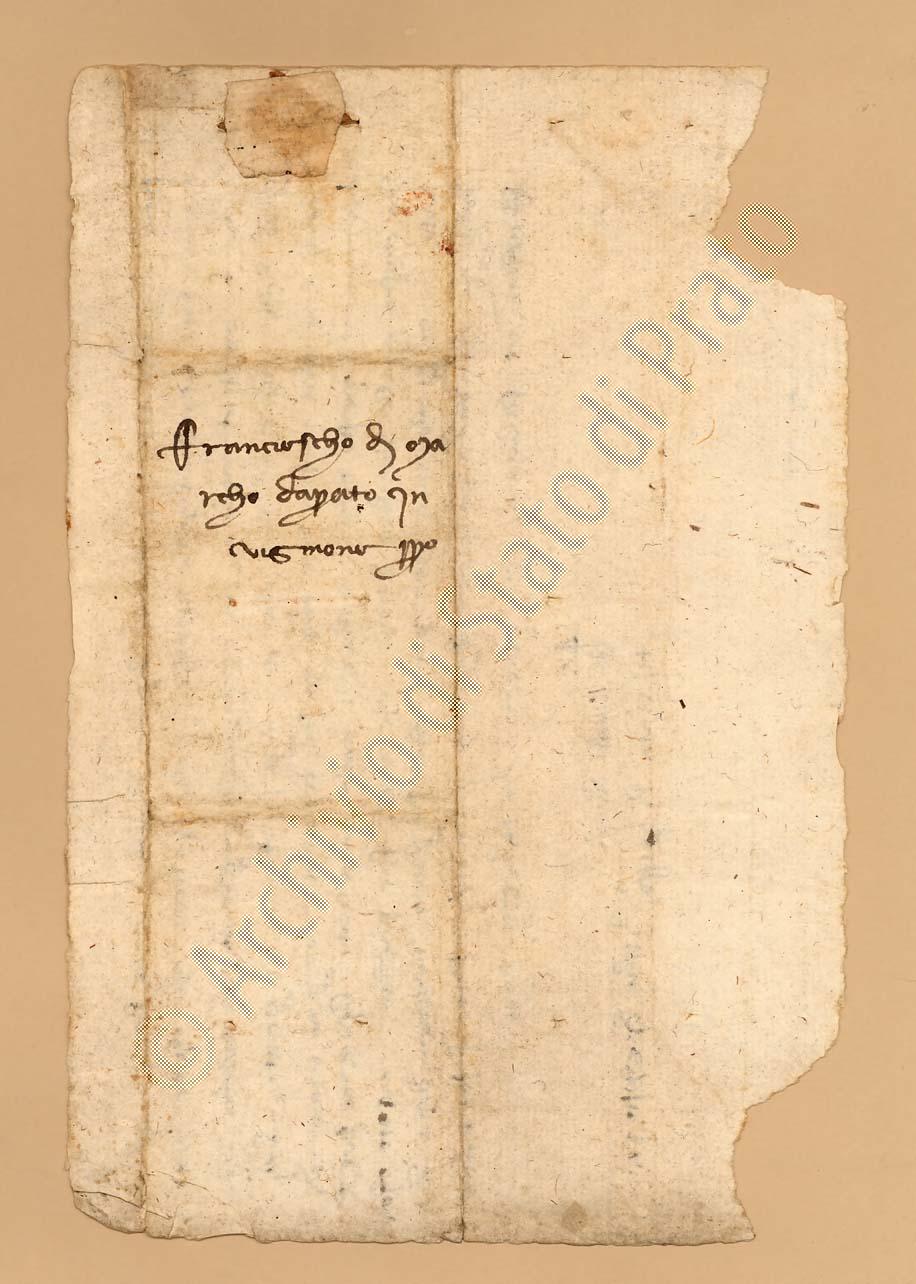 Franciescho di Ma
rcho da prato in
vignone ppo
© Archivio di Stato di Prato